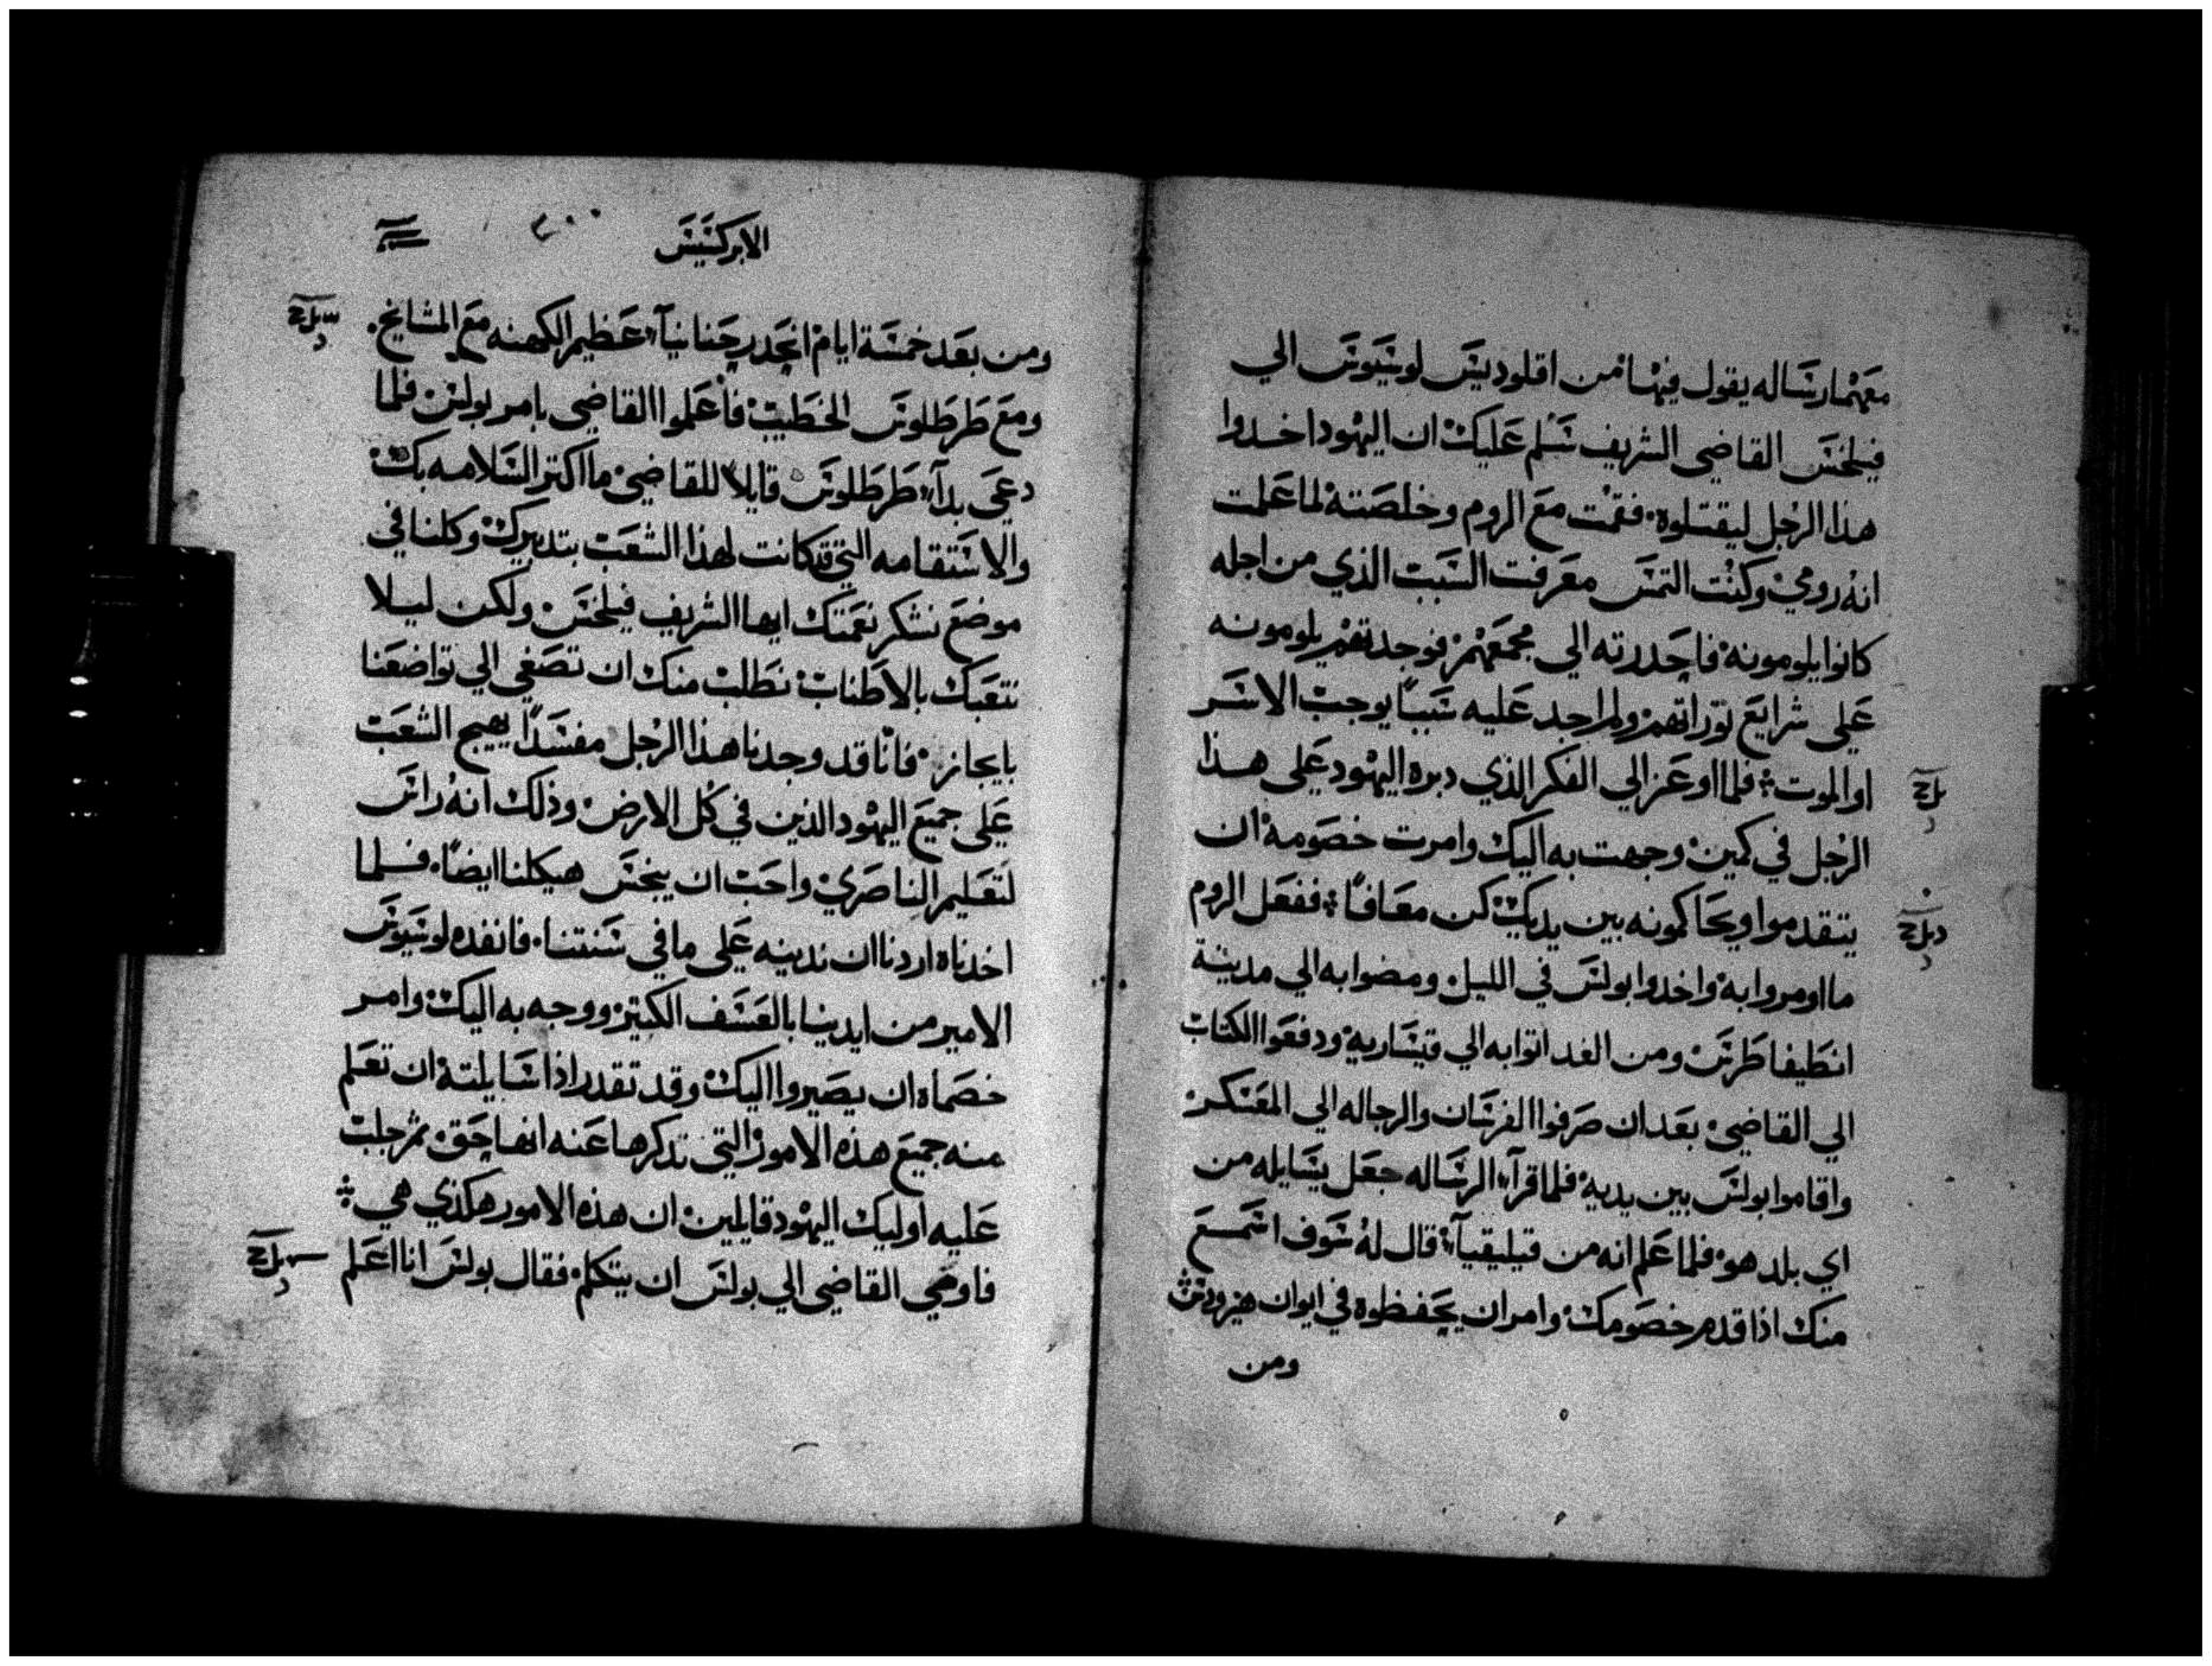 معهما رساله يقول فيها من اقلوديس لوسيوس الي
فيلخس القاضي الشريف سلم عليك ان اليهود اخدوا
هذا الرجل ليقتلوه فقمت مع الروم وخلصته لما علمت
انه رومي وكنت التمس معرفت السبب الذي من اجله
كانوا يلومونه فاحدرته الي مجمعهم فوجدتهم يلومونه
علي شرايع توراتهم ولم اجد عليه سببا يوجب الاسر
او الموت فلما اوعز الي الفكر الذي دبره اليهود علي هذا
الرجل في كمين وجهت به اليك وامرت خصومه ان
يتقدموا ويحاكمونه بين يديك كن معافا ففعل الروم
ما اومروا به واخدوا بولس في الليل ومضوا به الي مدينة
انطيفاطرس ومن الغد اتوا به الي قيساريه ودفعوا الكتاب
الي القاضي بعد ان صرفوا الفرسان والرجاله الي المعسكر
واقاموا بولس بين يديه فلما قرآ الرساله جعل يسايله من
اي بلد هو فلما علم انه من قيليقيآ قال له سوف اسمع
منك اذا قدم خصومك وامر ان يحفظوه في ايوان هيرودس
ومن
الابركسيس
٤٠٠
ومن بعد خمسة ايام انحدر حنانيآ عظيم الكهنه مع المشايخ
ومع طرطلوس الخطيب فأعلموا القاضي بامر بولس فلما
دعي بدآ طرطلوس قايلا للقاضي ما اكتر السلامه بك
والاستقامه التي قد كانت لهذا الشعب بتدبيرك وكلنا في
موضع نشكر نعمتك ايها الشريف فيلخس ولكن ليلا
نتعبك بالاطناب نطلب منك ان تصغي الي تواضعنا
بايجاز فانا قد وجدنا هذا الرجل مفسدا يهيج الشعب
علي جميع اليهود الذين في كل الارض وذلك انه راس
لتعليم الناصري واحب ان ينجس هيكلنا ايضا فلما
اخدناه اردنا ان ندينه علي ما في سنتنا فانفده لوسيوس
الامير من ايدينا بالعسف الكتير ووجه به اليك وامر
خصماه ان يصيروا اليك وقد تقدر اذا سايلته ان تعلم
منه جميع هذه الامور التي تدكرها عنه انها حق ثم جلب
عليه اوليك اليهود قايلين ان هذه الامور هكذي هي
فاومي القاضي الي بولس ان يتكلم فقال بولس انا اعلم